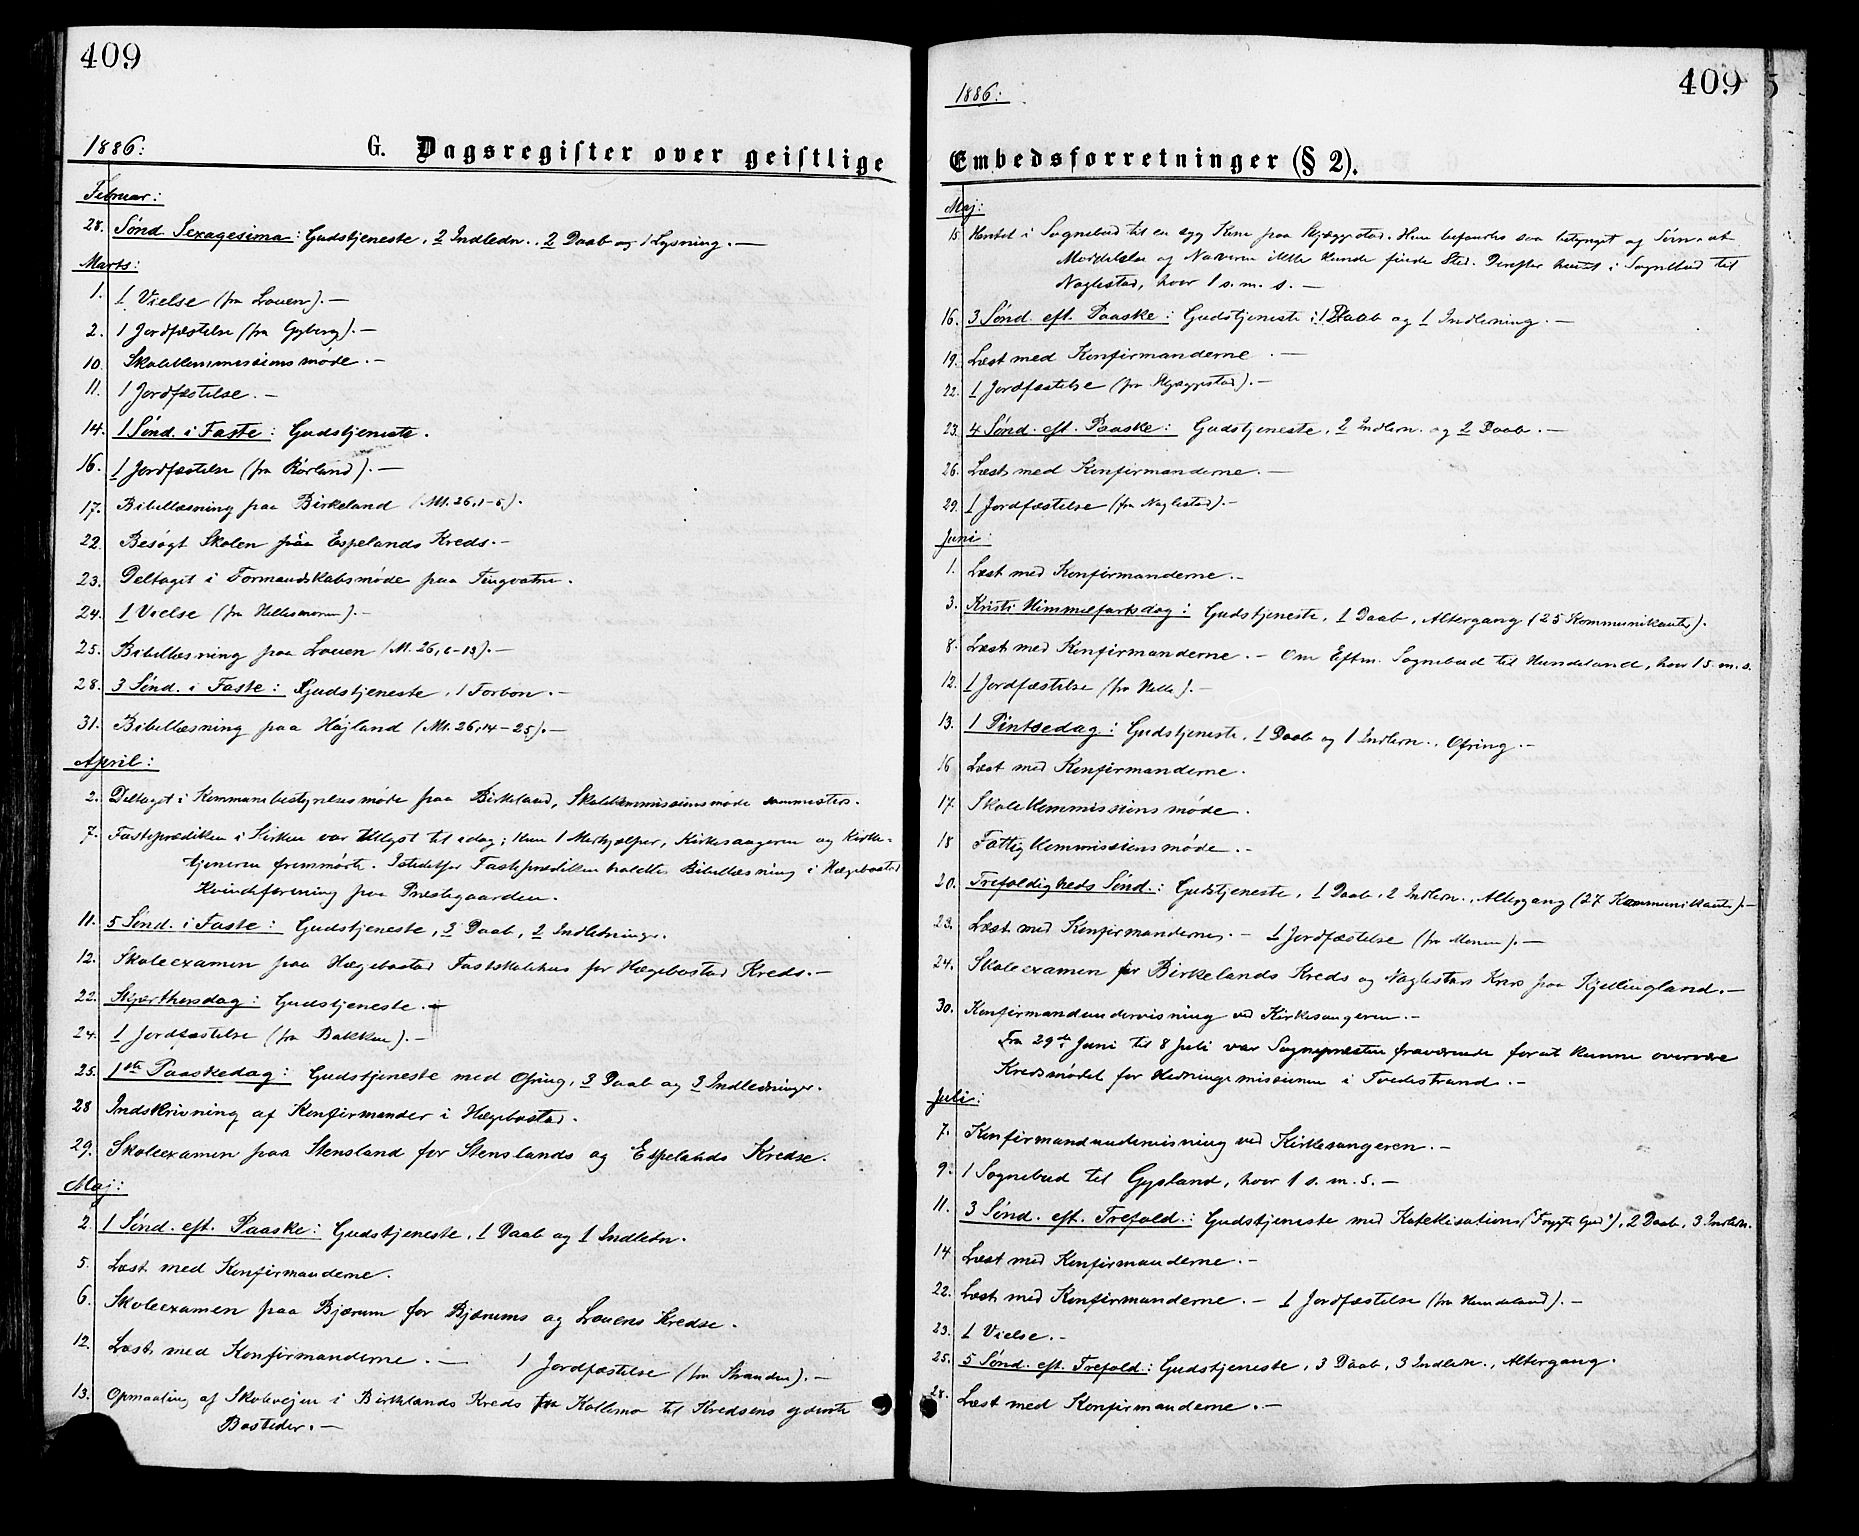 409
1886:
G. Dagsregister over geistlige
Februar:
28. Sønd. Sexagesima: Gudstjeneste, 2 Indledn., 2 Daab og 1 Lysning. —
Marts:
1. 1 Vielse (fra Lauen). —
2. 1 Jordfæstelse (fra Gyberg). —
10. Skolekommissionsmøde. —
11. 1 Jordfæstelse. —
14. 1 Sønd. i Faste: Gudstjeneste.
16. 1 Jordfæstelse (fra Rørland). —
17. Bibellæsning paa Birkeland (Mt. 26, 1-5).
22. Besøgt Skolen paa Espelands Kreds. —
23. Deltaget i Formandskabsmøde paa Tingvatne.
24. 1 Vielse (fra Hellemoren). —
25. Bibellæsning paa Lauen (Mt. 26, 6-13). —
28. 3 Sønd. i Faste: Gudstjeneste, 1 Forbøn. —
31. Bibellæsning paa Højland (Mt. 26, 14-25). —
April:
2. Deltaget i Kommunebestyrelsesmøde paa Birkeland, Skolekommissionsmøde sammesteds.
7. Fasteprædiken i Kirken var tillyst til idag; kun 1 Medhjælper, Kirkesangeren og Kirke-
tjeneren fremmødte. Istedetfor Fasteprædiken holdtes Bibellæsning i Hægebostad
Kvindeforening paa Præstegaarden.
11. 5 Sønd. i Faste: Gudstjeneste, 3 Daab, 2 Indledninger.
12. Skoleexamen paa Hægebostad Fastskolehus for Hægebostad Kreds. —
22. Skjærthorsdag: Gudstjeneste. —
24. 1 Jordfæstelse (fra Bakken). —
25. 1ste Paaskedag: Gudstjeneste med Ofring, 3 Daab og 3 Indledninger.
28 Indskrivning af Konfirmander i Hægebostad.
29. Skoleexamen paa Stensland for Stenslands og Espelands Kredse.
Maj:
2. 1 Sønd. eft. Paaske: Gudstjeneste, 1 Daab og 1 Indledn.
5. Læst med Konfirmanderne.
6. Skoleexamen paa Bjærum for Bjærums og Lauens Kredse.
12. Læst med Konfirmanderne. — 1 Jordfæstelse (fra Stranden). —
13. Opmaaling af Skolevejen i Birkelands Kreds fra Kollemo til Kredsens yderste
Bosteder. —
409
1886:
Embedsforretninger (§ 2).
Maj:
15. Hentet i Sognebud til en syg Kone paa Skjæggestad. Hun befandtes saa betynget af Søvn, at
Meddelelse af Nadveren ikke kunde finde Sted. Derefter hentet i Sognebud til
Naglestad, hvor 1 s. m. s. —
16. 3 Sønd. eft. Paaske: Gudstjeneste: 1 Daab og 1 Indledning. —
19. Læst med Konfirmanderne. —
22. 1 Jordfæstelse (fra Skjæggestad). —
23. 4 Sønd. eft. Paaske: Gudstjeneste, 2 Indledn. og 2 Daab. —
26. Læst med Konfirmanderne. —
29. 1 Jordfæstelse (fra Naglestad). —
Juni:
1. Læst med Konfirmanderne. —
3. Kristi Himmelfartsdag: Gudstjeneste, 1 Daab, Altergang (25 Kommunikanter).
8. Læst med Konfirmanderne. — Om Eftm. Sognebud til Hundeland, hvor 1 s. m. s.
12. 1 Jordfæstelse (fra Helle). —
13. 1 Pintsedag: Gudstjeneste, 1 Daab og 1 Indledn., Ofring. —
16 Læst med Konfirmanderne.
17. Skolekommissionsmøde.
18 Fattigkommissionsmøde. —
20. Trefoldigheds Sønd.: Gudstjeneste, 1 Daab, 2 Indledn., Altergang (27 Kommunikanter). —
23. Læst med Konfirmanderne. — 1 Jordfæstelse (fra Monen). —
24. Skoleexamen for Birkelands Kreds og Naglestads Kreds paa Kjellingland. —
30. Konfirmandundervisning ved Kirkesangeren. —
Fra 29de Juni til 8 Juli var Sognepræsten fraværende for at kunne overvære
Kredsmødet for Hedningemissionen i Tvedestrand. —
Juli:
7. Konfirmandundervisning ved Kirkesangeren. —
9. 1 Sognebud til Gysland, hvor 1 s. m. s. —
11. 3 Sønd. eft. Trefold.: Gudstjeneste med Katekisation ("Frygte Gud"), 2 Daab, 3 Indledn.
14 Læst med Konfirmanderne. —
22. Læst med Konfirmanderne. — 1 Jordfæstelse (fra Hundeland). —
23. 1 Vielse. —
25. 5 Sønd. eft. Trefold.: Gudstjeneste, 3 Daab, 3 Indledn., Altergang.
28. Læst med Konfirmanderne. —